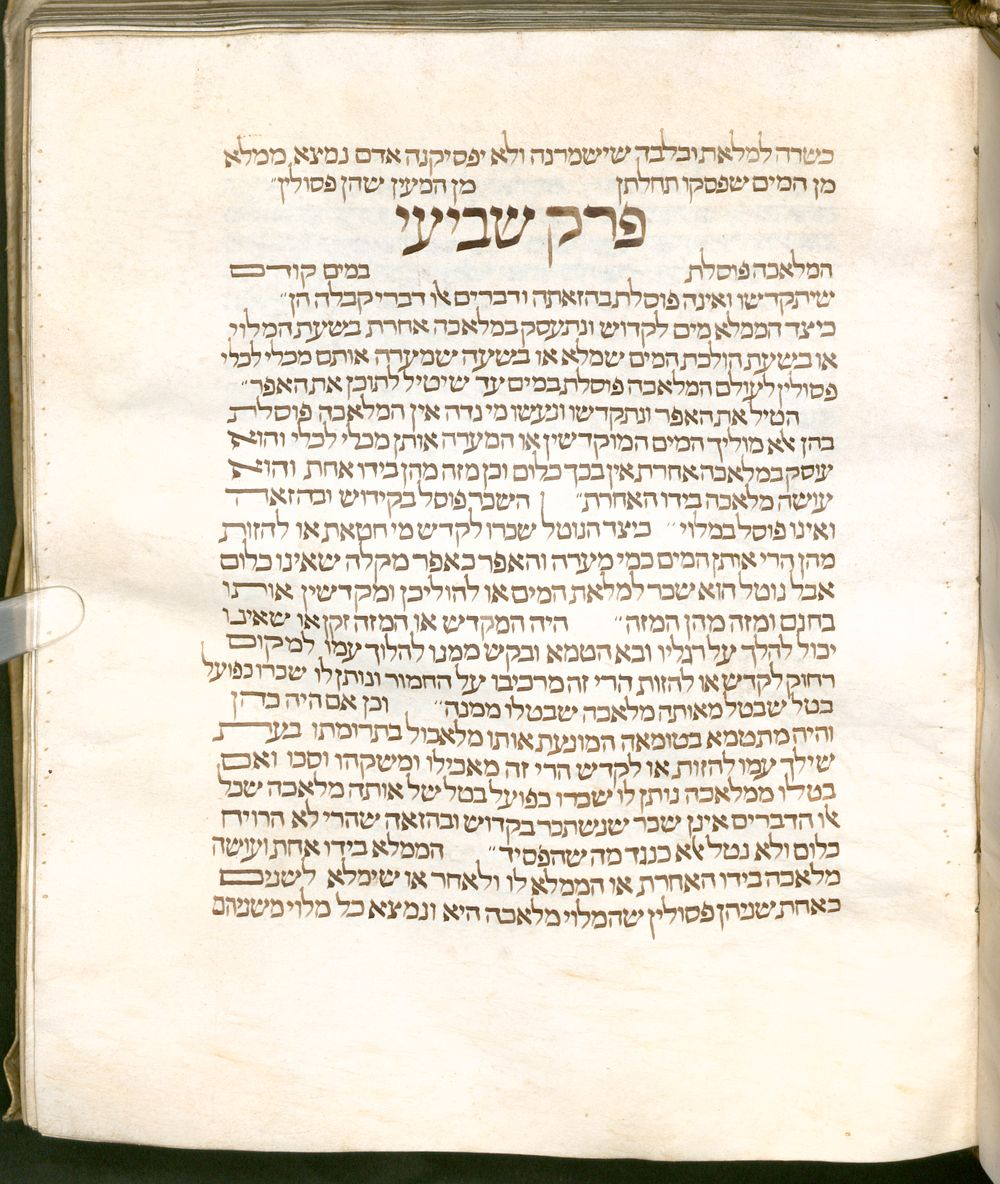 כשרה למלאת ובלבד שישמרנה ולא יפסיקנה אדם נמצא ממלא
מן המים שפסקו תחלתן מן המעין שהן פסולין״
פרק שביעי
המלאכה פוסלת במים קודם
שיתקדשו ואינה פוסלת בהזאתה ודברים אלו דברי קבלה הן״
כיצד הממלא מים לקדוש ונתעסק במלאכה אחרת בשעת המלוי
או בשעת הולכת המים שמלא או בשעה שמערה אותם מכלי לכלי
פסולין לעולם המלאכה פוסלת במים עד שיטיל לתוכן את האפר״
הטיל את האפר ונתקדשו ונעשו מי נדה אין המלאכה פוסלת
בהן אלא מוליך המים המוקדשין או המערה אותן מכלי לכלי והוא
עוסק במלאכה אחרת אין בכך כלום וכן מזה מהן בידו אחת והוא
עושה מלאכה בידו האחרת״ השכר פוסל בקידוש ובהזאה
ואינו פוסל במלוי״ כיצד הנוטל שכרו לקדש מי חטאת או להזות
מהן הרי אותן המים כמי מערה והאפר כאפר מקלה שאינו כלום
אבל נוטל הוא שכר למלאת המים או להוליכן ומקדשין אותו
בחנם ומזה מהן המזה״ היה המקדש או המזה זקן או שאינו
יכול להלך על רגליו ובא הטמא ובקש ממנו להלוך עמו למקום
רחוק לקדש או להזות הרי זה מרכיבו על החמור ונותן לו שכרו כפועל
בטל שבטל מאותה מלאכה שבטלו ממנה״ וכן אם היה כהן
והיה מתטמא בטומאה המונעת אותו מלאכול בתרומתו בעת
שילך עמו להזות או לקדש הרי זה מאכילו ומשקהו וסכו ואם
בטלו ממלאכה נותן לו שכרו כפועל בטל של אותה מלאכה שכל
אלו הדברים אינן שכר שנשתכר בקדוש ובהזאה שהרי לא הרויח
כלום ולא נטל אלא כנגד מה שהפסיד״ הממלא בידו אחת ועושה
מלאכה בידו האחרת או הממלא לו ולאחר או שימלא לשנים
כאחת שניהן פסולין שהמלוי מלאכה היא ונמצא כל מלוי משניהם